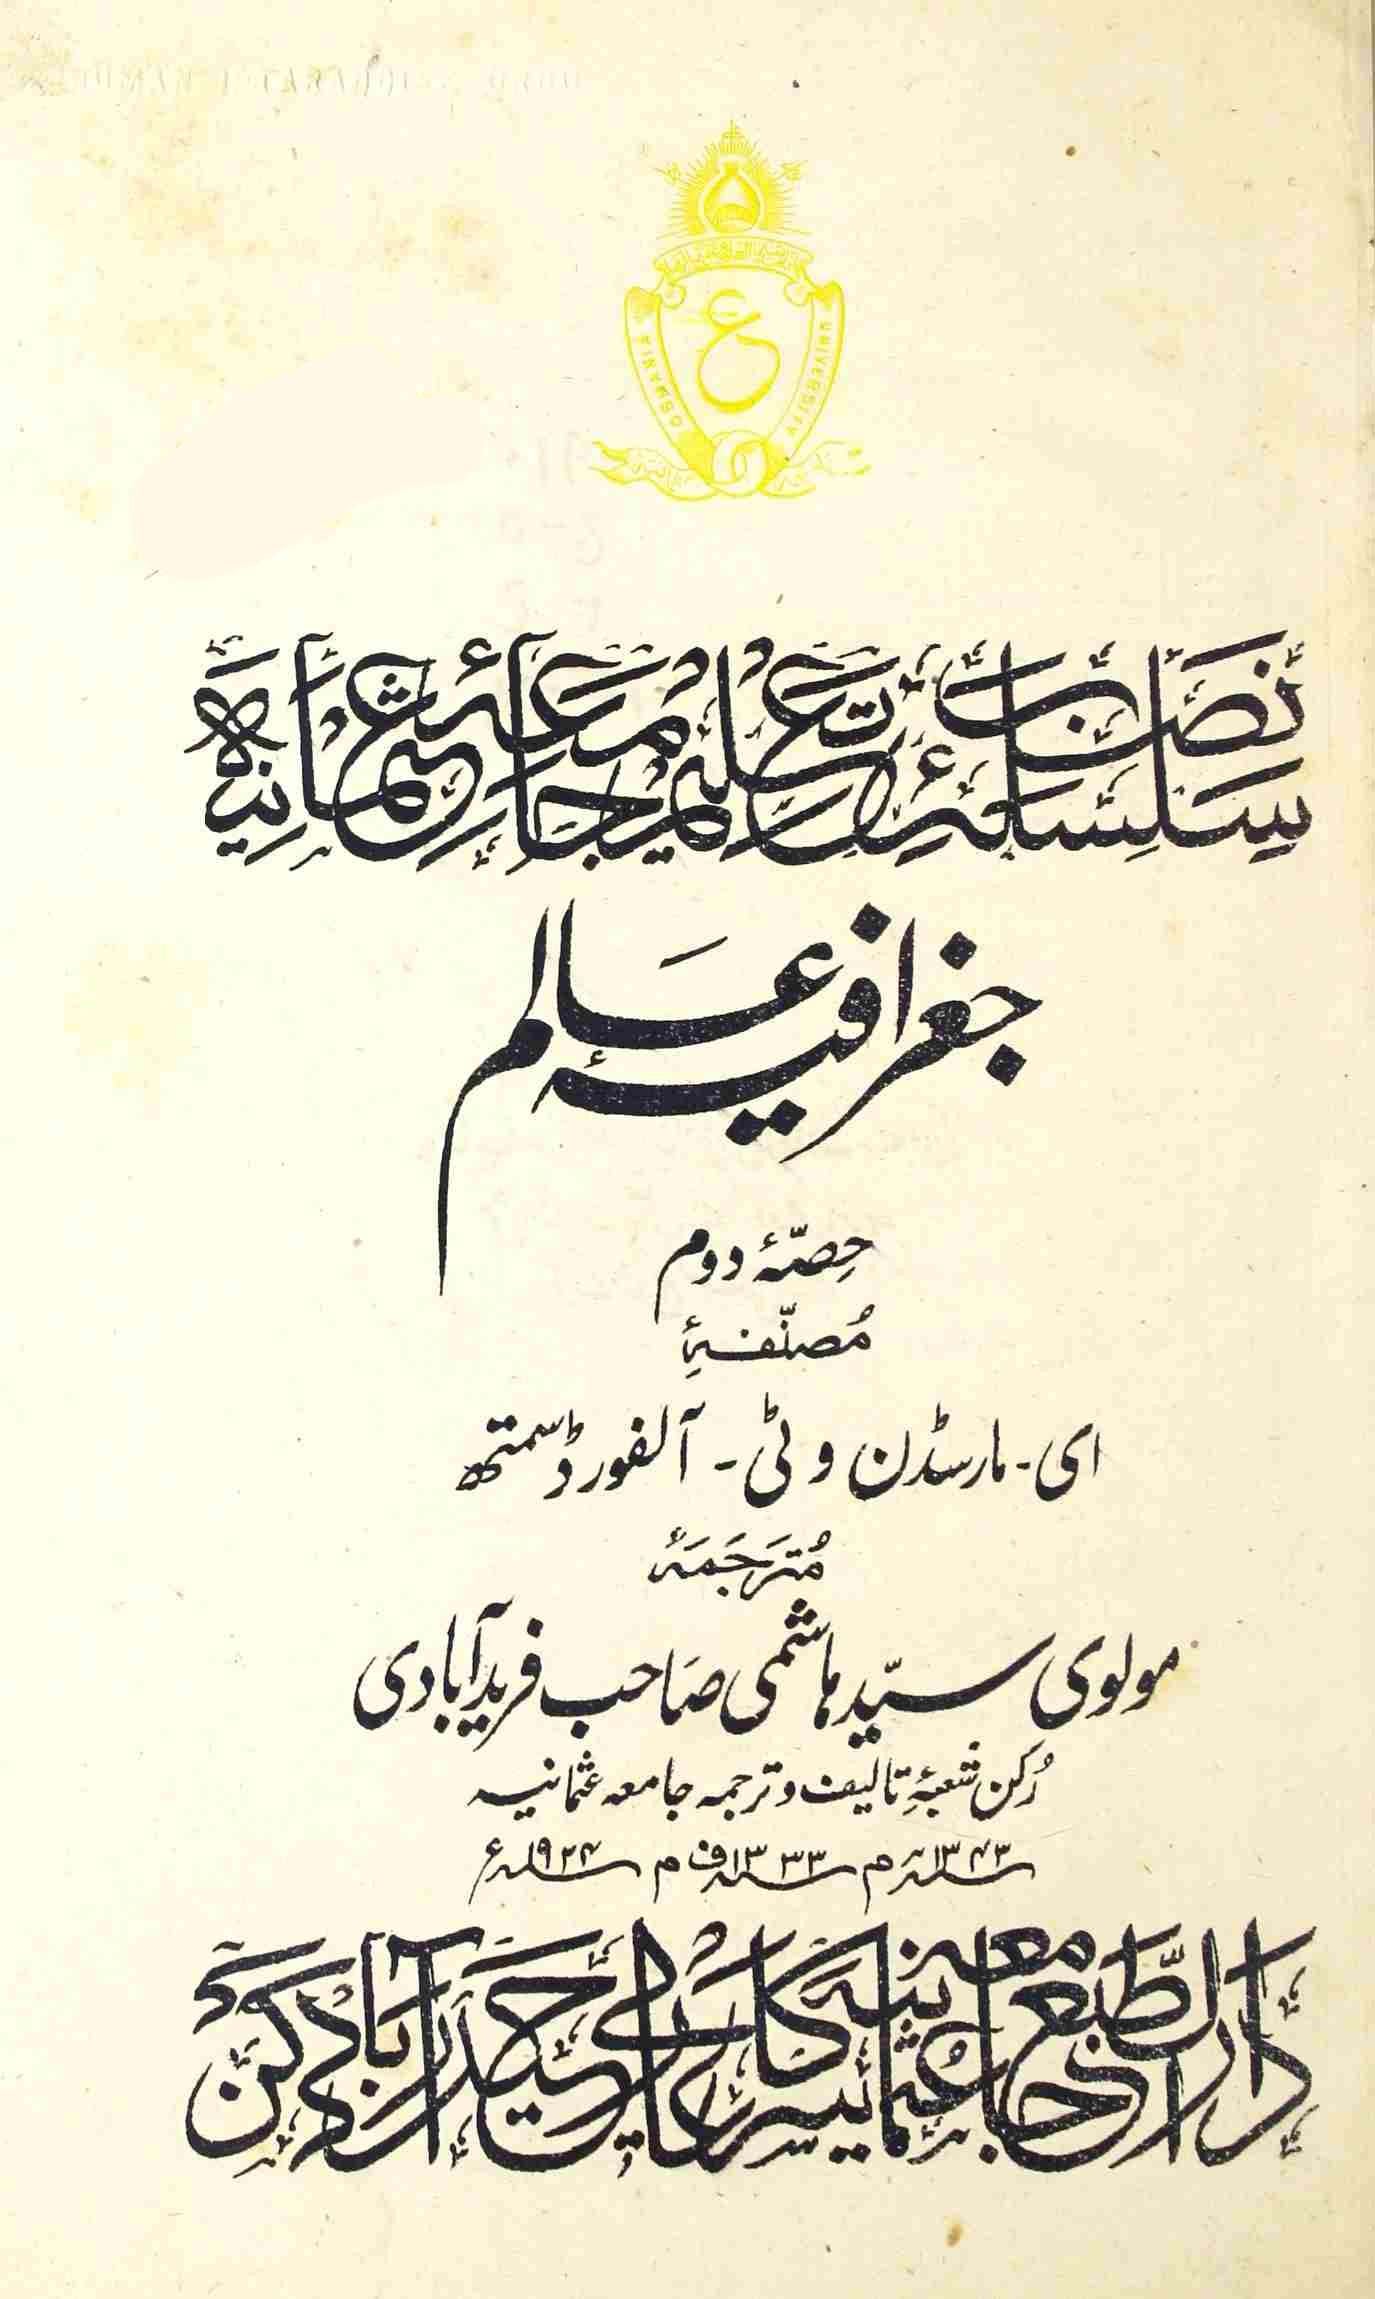 OSMANIA UNIVERSITY
ع
سلسلۂ نصاب تعلیم جامعۂ عثمانیہ
جغرافیۂ عالم
حِصّۂ دوم
مُصنّفۂ
ای۔ مارسڈن و ٹی۔ آلفورڈ سمتھ
مُترجَمَۂ
مولوی سیّد ہاشمی صاحب فریدآبادی
رُکن شعبۂ تالیف و ترجمہ جامعہ عثمانیہ
۱۳۴۳ھ م ۱۳۳۳ف م ۱۹۲۴ء
دارالطبع جامعہ عثمانیہ سرکار عالی حیدرآباد دکن